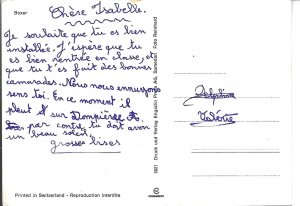 Boxer
Chère Isabelle.
Je souhaite que tu es bien
installée. J'espère que tu
es bien rentrée en classe, et
que tu t'es fait des bonnes
camarades. Nous nous ennuyons
sans toi. En ce moment il
pleut sur Dompierre
par contre tu doit avoir
un beau soleil.
grosses bises
Delphine
Valérie
Printed in Switzerland - Reproduction interdite